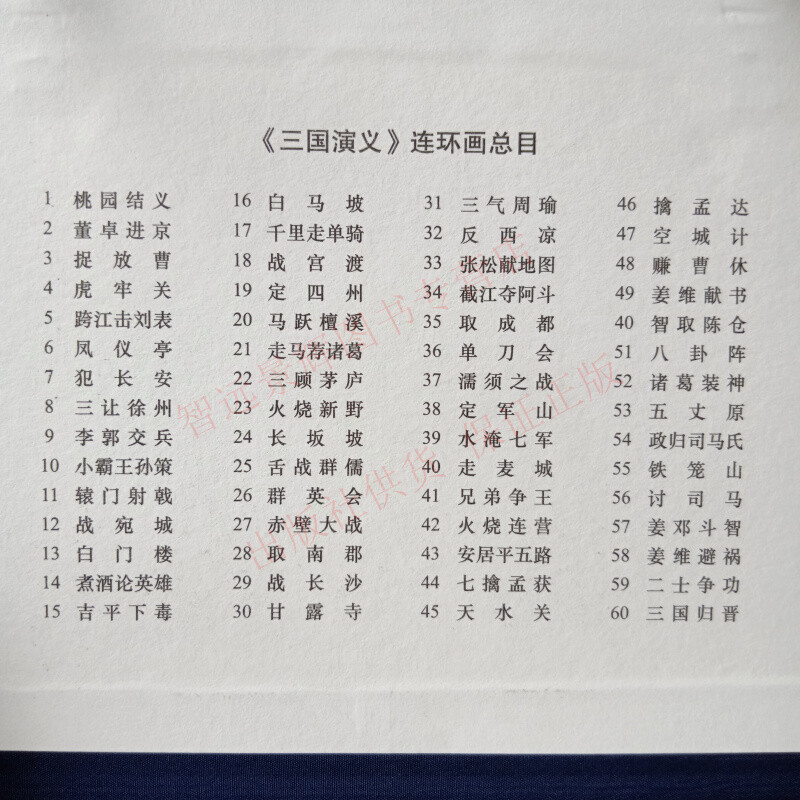 《三国演义》连环画总目
1 桃园结义
2 董卓进京
3 捉放曹
4 虎牢关
5 跨江击刘表
6 凤仪亭
7 犯长安
8 三让徐州
9 李郭交兵
10 小霸王孙策
11 辕门射戟
12 战宛城
13 白门楼
14 煮酒论英雄
15 吉平下毒
16 白马坡
17 千里走单骑
18 战官渡
19 定四州
20 马跃檀溪
21 走马荐诸葛
22 三顾茅庐
23 火烧新野
24 长坂坡
25 舌战群儒
26 群英会
27 赤壁大战
28 取南郡
29 战长沙
30 甘露寺
31 三气周瑜
32 反西凉
33 张松献地图
34 截江夺阿斗
35 取成都
36 单刀会
37 濡须之战
38 定军山
39 水淹七军
40 走麦城
41 兄弟争王
42 火烧连营
43 安居平五路
44 七擒孟获
45 天水关
46 擒孟达
47 空城计
48 赚曹休
49 姜维献书
40 智取陈仓
51 八卦阵
52 诸葛装神
53 五丈原
54 政归司马氏
55 铁笼山
56 讨司马
57 姜邓斗智
58 姜维避祸
59 二士争功
60 三国归晋
智远景 图书专营店
出版社供货 保证正版